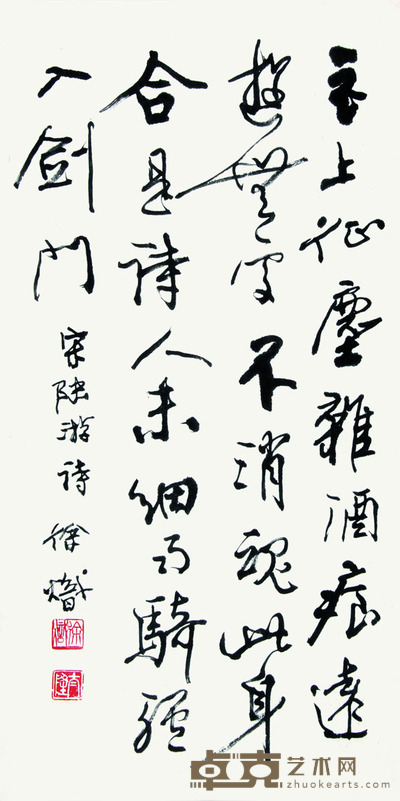 衣上征塵雜酒痕遠
遊無處不消魂此身
合是詩人未細雨騎驢
入劍門
宋陸游詩 徐熾
徐熾
卓克艺术网
zhuokearts.com